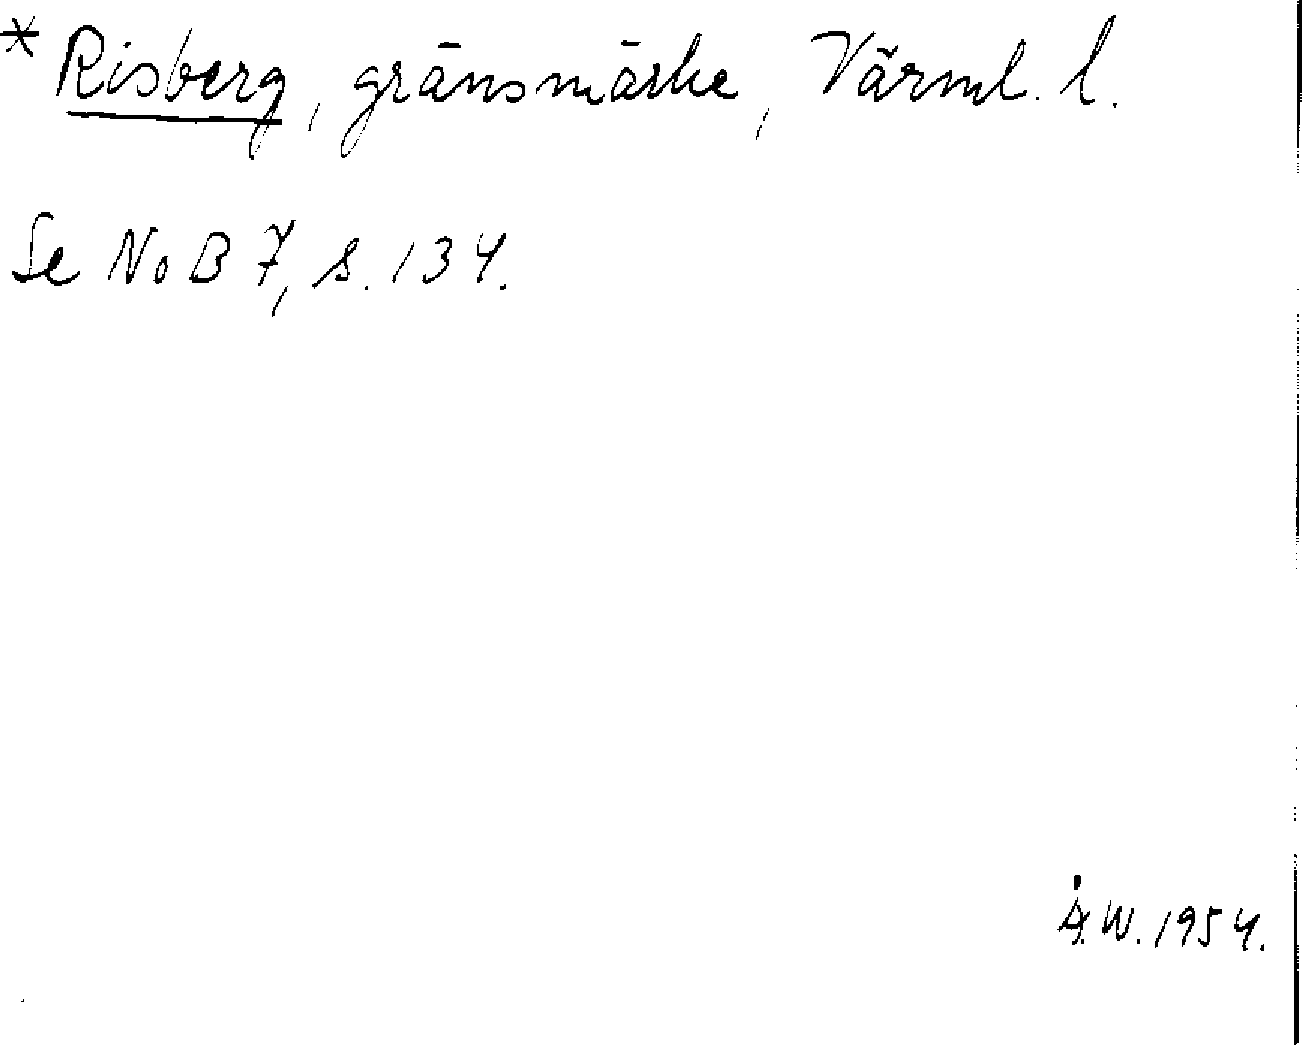 * Risberg, gränsmärke, Värml. l.
Se NoB 7, s. 134.
Å.W. 1954.